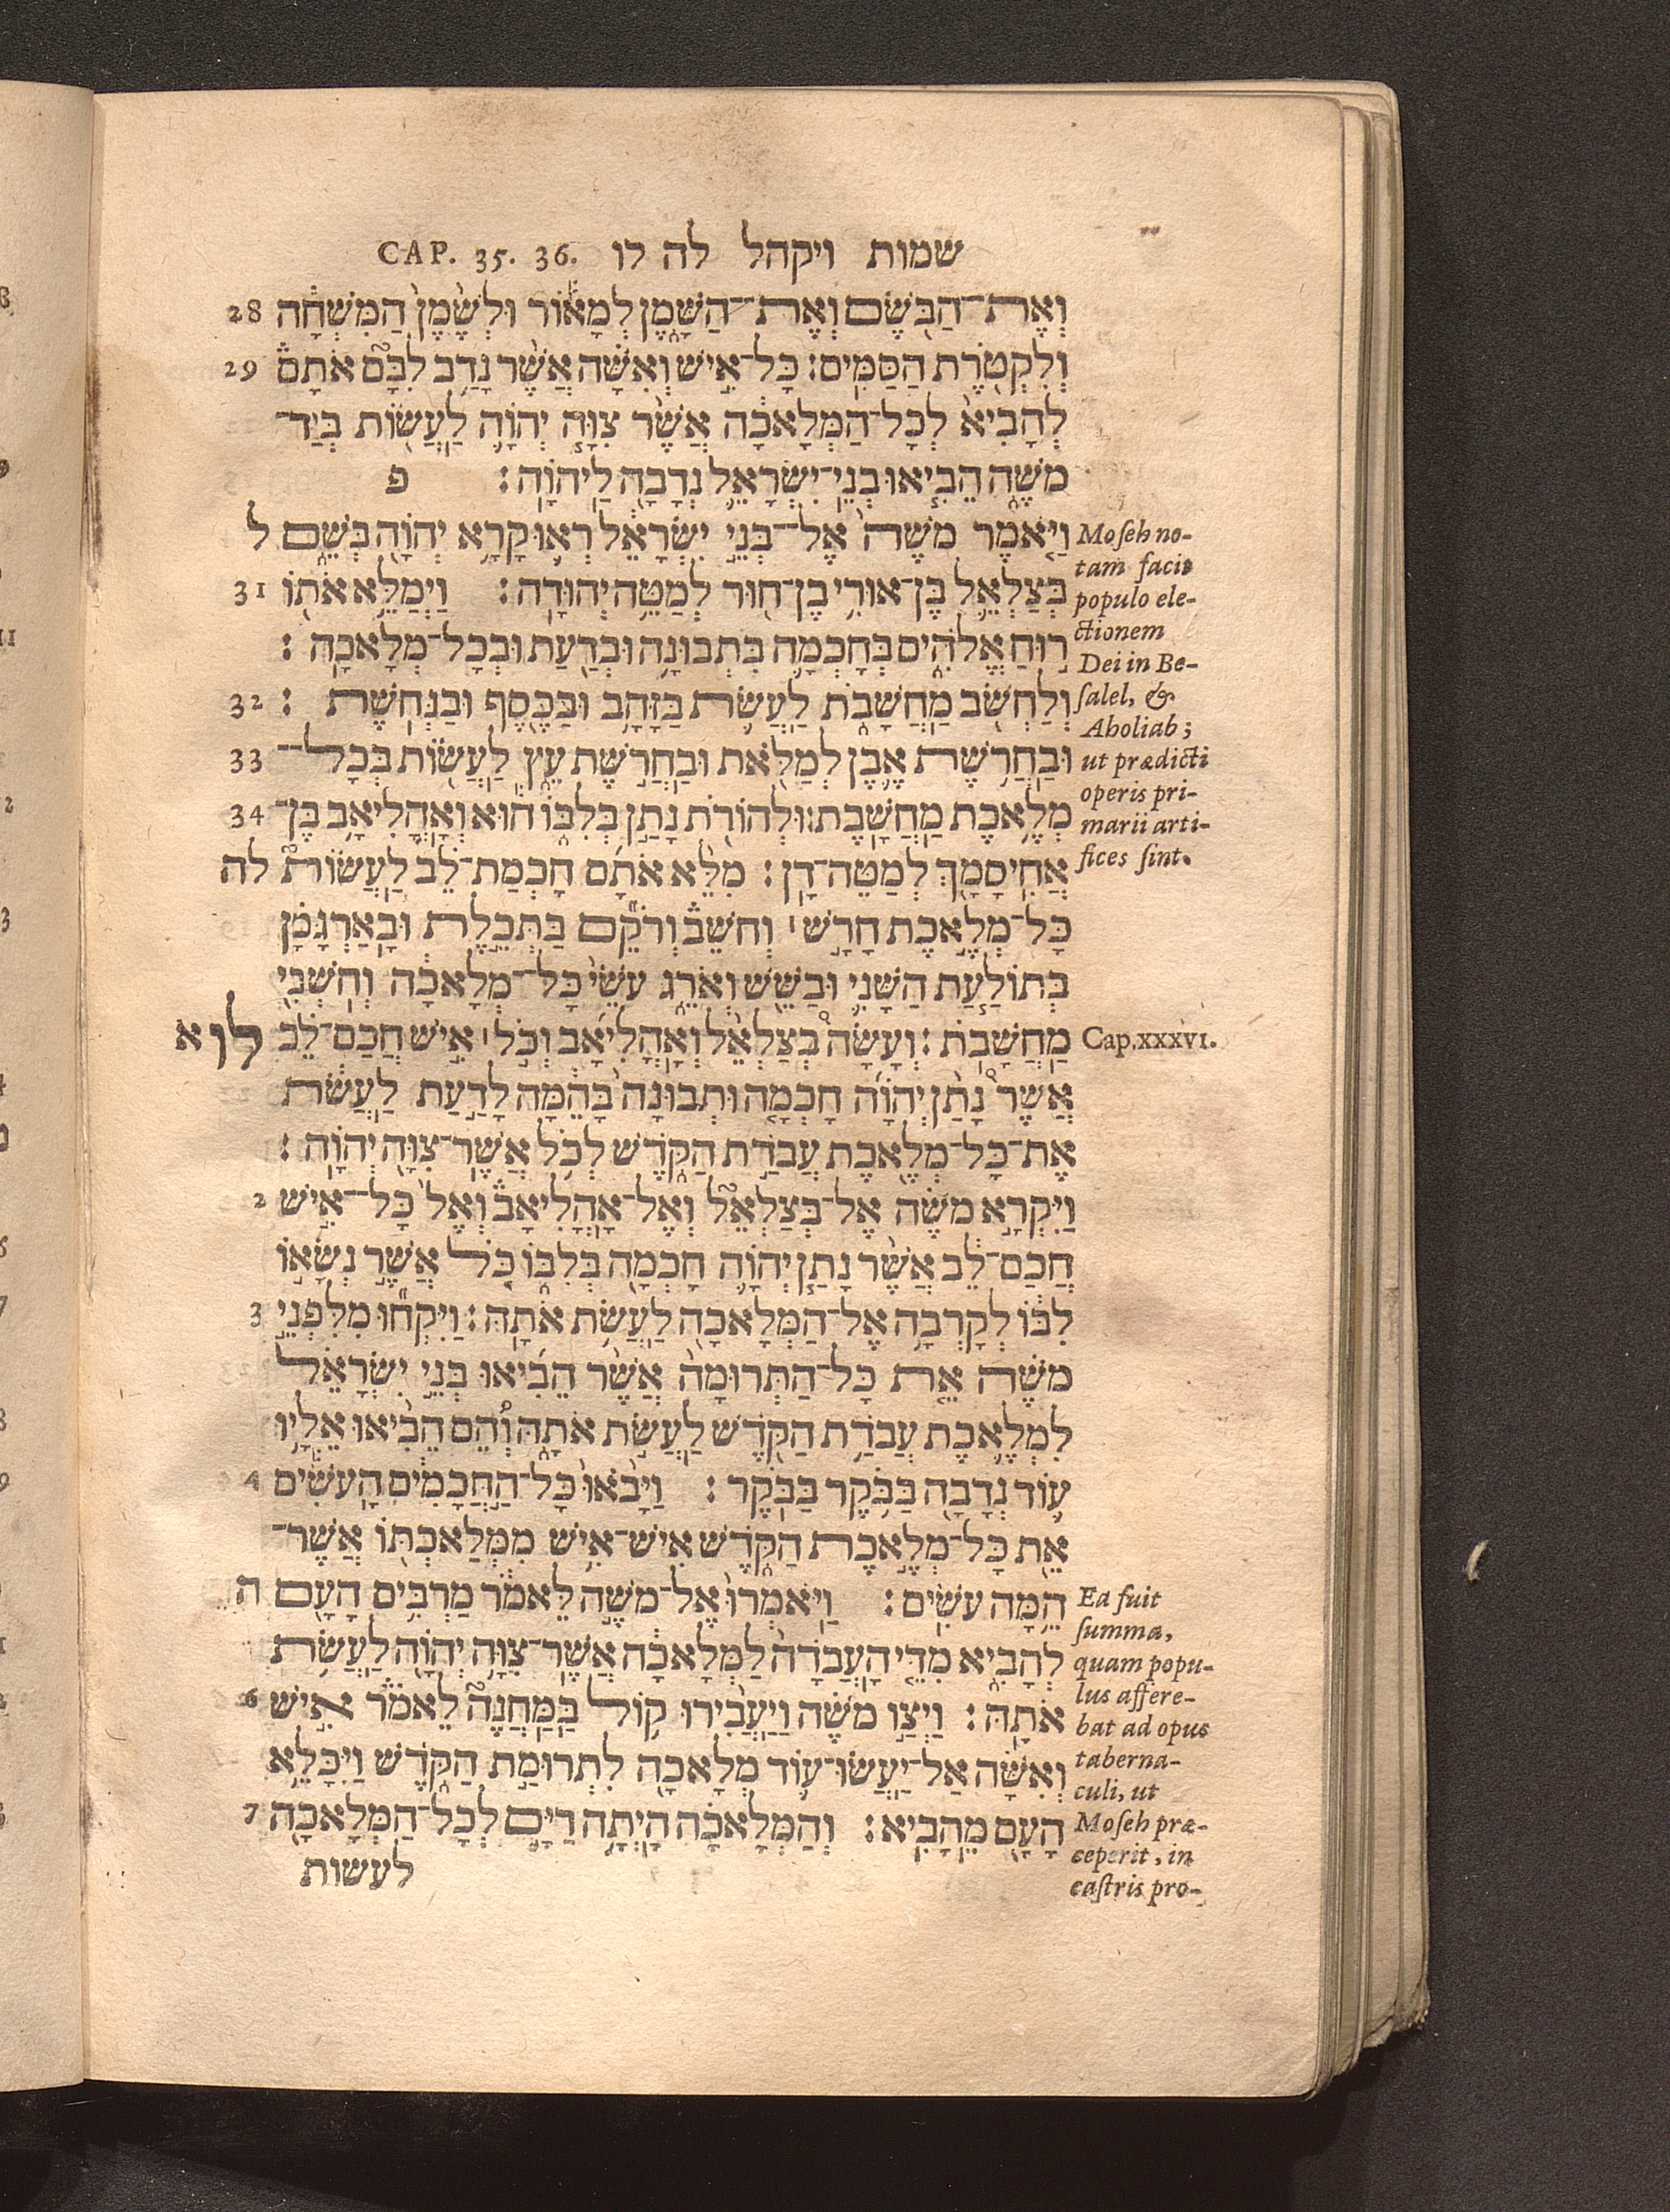 שמות ויקהל לה לו CAP. 35. 36.
28 וְאֶת־הַבֹּ֖שֶׂם וְאֶת־הַשָּׁ֑מֶן לְמָא֕וֹר וּלְשֶׁ֙מֶן֙ הַמִּשְׁחָ֔ה
29 וְלִקְטֹ֖רֶת הַסַּמִּֽים׃ כָּל־אִ֣ישׁ וְאִשָּׁ֗ה אֲשֶׁ֨ר נָדַ֣ב לִבָּם֮ אֹתָם֒
לְהָבִיא֙ לְכָל־הַמְּלָאכָ֔ה אֲשֶׁ֨ר צִוָּ֧ה יְהוָ֛ה לַעֲשׂ֖וֹת בְּיַד־
מֹשֶׁ֑ה הֵבִ֧יאוּ בְנֵי־יִשְׂרָאֵ֛ל נְדָבָ֖ה לַיהוָֽה׃ פ
ל וַיֹּ֤אמֶר מֹשֶׁה֙ אֶל־בְּנֵ֣י יִשְׂרָאֵ֔ל רְא֛וּ קָרָ֥א יְהוָ֖ה בְּשֵׁ֑ם
31 בְּצַלְאֵ֛ל בֶּן־אוּרִ֥י בֶן־ח֖וּר לְמַטֵּ֥ה יְהוּדָֽה׃ וַיְמַלֵּ֥א אֹת֖וֹ
ר֣וּחַ אֱלֹהִ֑ים בְּחָכְמָ֛ה בִּתְבוּנָ֥ה וּבְדַ֖עַת וּבְכָל־מְלָאכָֽה׃
32 וְלַחְשֹׁ֖ב מַֽחֲשָׁבֹ֑ת לַעֲשֹׂ֛ת בַּזָּהָ֥ב וּבַכֶּ֖סֶף וּבַנְּחֹֽשֶׁת׃
33 וּבַחֲרֹ֥שֶׁת אֶ֛בֶן לְמַלֹּ֖את וּבַחֲרֹ֣שֶׁת עֵ֑ץ לַעֲשׂ֖וֹת בְּכָל־
34 מְלֶ֥אכֶת מַחֲשָֽׁבֶת׃ וּלְהוֹרֹ֖ת נָתַ֣ן בְּלִבּ֑וֹ ה֕וּא וְאָֽהֳלִיאָ֥ב בֶּן־
לה אֲחִיסָמָ֖ךְ לְמַטֵּה־דָֽן׃ מִלֵּ֨א אֹתָ֜ם חָכְמַת־לֵ֗ב לַעֲשׂוֹת֮
כָּל־מְלֶ֣אכֶת חָרָ֣שׁ ׀ וְחֹשֵׁב֒ וְרֹקֵ֞ם בַּתְּכֵ֣לֶת וּבָֽאַרְגָּמָ֗ן
בְּתוֹלַ֧עַת הַשָּׁנִ֛י וּבַשֵּׁ֖שׁ וְאֹרֵ֑ג עֹשֵׂי֙ כָּל־מְלָאכָ֔ה וְחֹשְׁבֵ֖י
לו א מַחֲשָׁבֹֽת׃ וְעָשָׂה֩ בְצַלְאֵ֨ל וְאָהֳלִיאָ֜ב וְכֹ֣ל ׀ אִ֣ישׁ חֲכַם־לֵ֗ב
אֲשֶׁר֩ נָתַ֨ן יְהוָ֜ה חָכְמָ֤ה וּתְבוּנָה֙ בָּהֵ֔מָּה לָדַ֣עַת לַעֲשֹׂ֔ת
אֶֽת־כָּל־מְלֶ֖אכֶת עֲבֹדַ֣ת הַקֹּ֑דֶשׁ לְכֹ֥ל אֲשֶׁר־צִוָּ֖ה יְהוָֽה׃
2 וַיִּקְרָ֣א מֹשֶׁ֗ה אֶל־בְּצַלְאֵל֮ וְאֶל־אָֽהֳלִיאָב֒ וְאֶל֙ כָּל־אִ֣ישׁ
חֲכַם־לֵ֔ב אֲשֶׁ֨ר נָתַ֧ן יְהוָ֛ה חָכְמָ֖ה בְּלִבּ֑וֹ כֹּ֚ל אֲשֶׁ֣ר נְשָׂא֣וֹ
3 לִבּ֔וֹ לְקָרְבָ֥ה אֶל־הַמְּלָאכָ֖ה לַעֲשֹׂ֥ת אֹתָֽהּ׃ וַיִּקְח֞וּ מִלִּפְנֵ֣י
מֹשֶׁ֗ה אֵ֤ת כָּל־הַתְּרוּמָה֙ אֲשֶׁ֨ר הֵבִ֜יאוּ בְּנֵ֣י יִשְׂרָאֵ֗ל
לִמְלֶ֛אכֶת עֲבֹדַ֥ת הַקֹּ֖דֶשׁ לַעֲשֹׂ֣ת אֹתָ֑הּ וְ֠הֵם הֵבִ֨יאוּ אֵלָ֥יו
4 ע֛וֹד נְדָבָ֖ה בַּבֹּ֥קֶר בַּבֹּֽקֶר׃ וַיָּבֹ֙אוּ֙ כָּל־הַ֣חֲכָמִ֔ים הָעֹשִׂ֕ים
אֵ֖ת כָּל־מְלֶ֣אכֶת הַקֹּ֑דֶשׁ אִֽישׁ־אִ֥ישׁ מִמְּלַאכְתּ֖וֹ אֲשֶׁר־
ה הֵ֥מָּה עֹשִֽׂים׃ וַיֹּאמְרוּ֙ אֶל־מֹשֶׁ֣ה לֵּאמֹ֔ר מַרְבִּ֥ים הָעָ֖ם
לְהָבִ֑יא מִדֵּ֤י הָֽעֲבֹדָה֙ לַמְּלָאכָ֔ה אֲשֶׁר־צִוָּ֥ה יְהוָ֖ה לַעֲשֹׂ֥ת
6 אֹתָֽהּ׃ וַיְצַ֣ו מֹשֶׁ֗ה וַיַּעֲבִ֨ירוּ ק֥וֹל בַּֽמַּחֲנֶה֮ לֵאמֹר֒ אִ֣ישׁ
וְאִשָּׁ֗ה אַל־יַעֲשׂוּ־ע֛וֹד מְלָאכָ֖ה לִתְרוּמַ֣ת הַקֹּ֑דֶשׁ וַיִּכָּלֵ֥א
7 הָעָ֖ם מֵהָבִֽיא׃ וְהַמְּלָאכָ֗ה הָיְתָ֥ה דַיָּ֛ם לְכָל־הַמְּלָאכָ֖ה
לעשות
Moseh no-
tam facit
populo ele-
ctionem
Dei in Be-
salel, &
Aholiab;
ut prædicti
operis pri-
marii arti-
fices sint.
Cap. XXXVI.
Ea fuit
summa,
quam popu-
lus affere-
bat ad opus
taberna-
culi, ut
Moseh præ-
ceperit, in
castris pro-